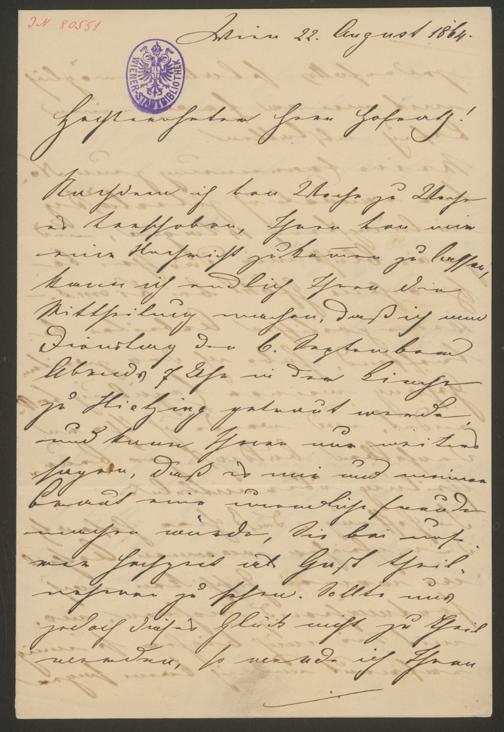 JN 80551
Wien 22. August 1864.
WIENER-STADTBIBLIOTHEK
Hochverehrter Herr Hofrath!
Nachdem ich von Woche zu Woche
es verschoben, Ihnen von mir
eine Nachricht zukommen zu lassen,
kann ich endlich Ihnen die
Mittheilung machen, daß ich am
Dienstag den 6. September
Abends 7 Uhr in der Kirche
zu Hietzing getraut werde,
und kann Ihnen nur weiters
sagen, daß es mir und meiner
Braut eine unendliche Freude
machen würde, Sie bei
Hochzeit als Gast theil-
nehmen zu sehen. Sollte uns
jedoch dieses Glück nicht zu Theil
werden, so werde ich Ihnen